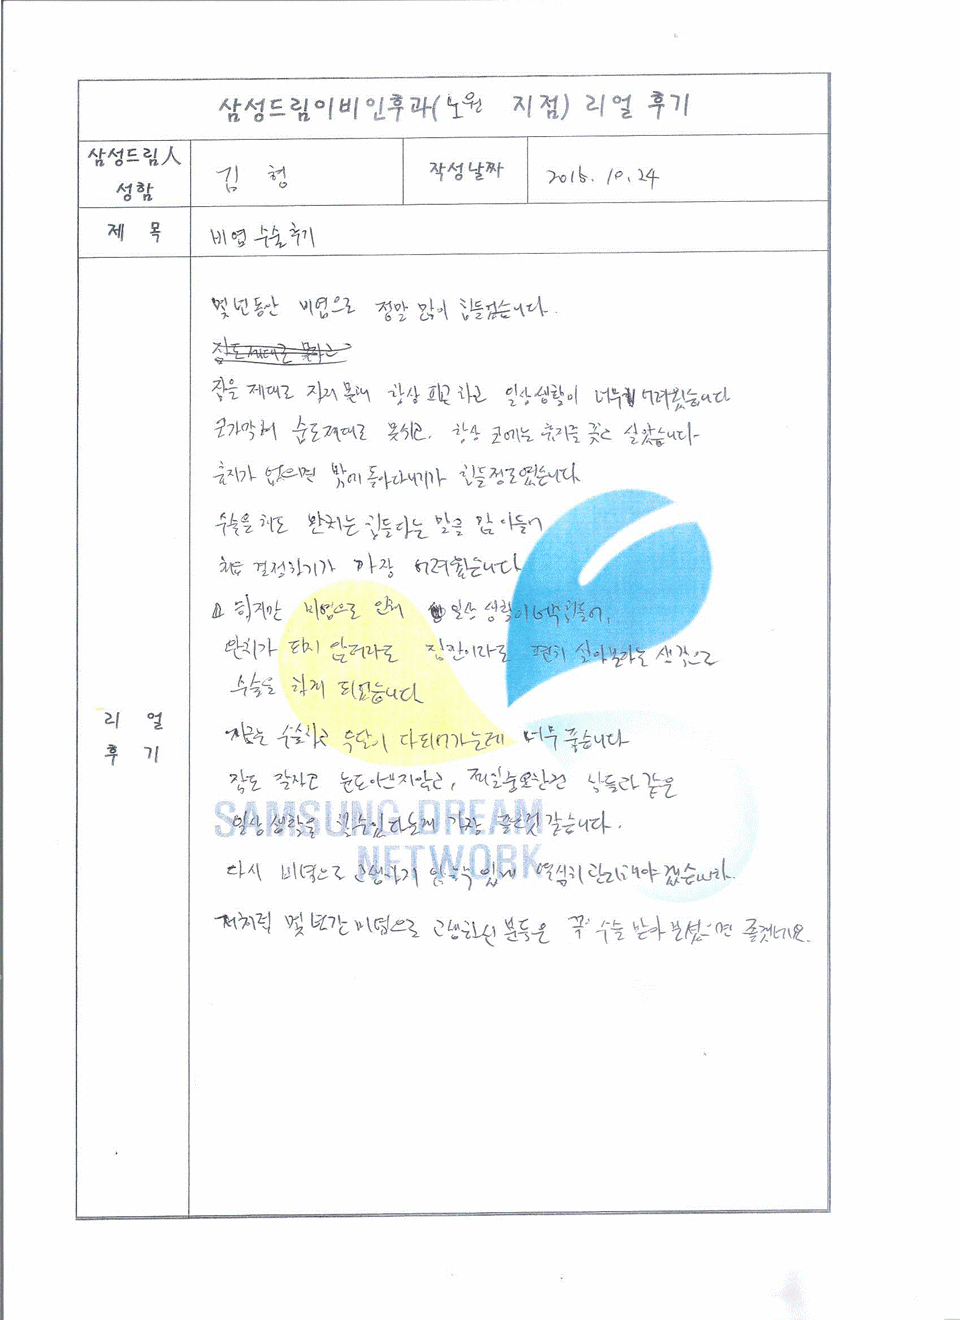 삼성드림이비인후과(노원 지점) 리얼 후기
삼성드림人 성함
김 형
작성날짜
2015. 10. 24
제 목
비염 수술 후기
리 얼 후 기
몇년동안 비염으로 정말 많이 힘들었습니다.
잠도 제대로 못자고
잠을 제대로 자지 못해 항상 피곤하고 일상생활이 너무 어려웠습니다
코가막혀 숨도제대로 못쉬고, 항상 코에는 휴지를 꽂고 살았습니다
휴지가 없으면 밖에 돌아다니기가 힐들정도였습니다
수술을 해도 완치는 힘들다는 말을 많이들어
결정하기가 가장 어려웠습니다
하지만 비염으로 인해 일상생활이 너무힘들어,
완치가 되지 않더라도 잠깐이라도 편히 살아보자는 생각으로
수술을 하게 되었습니다
지금은 수술하고 한달이 다되어가는데 너무 좋습니다
잠도 잘자고 눈도아프지않고, 제일중요한건 남들과 같은
일상생활을 할수있다는게 가장 좋은것 같습니다.
다시 비염으로 고생하지 않을수 있게 열심히 관리해야 겠습니다.
저처럼 몇 년간 비염으로 고생하신 분들은 꼭 수술 받아 보셨으면 좋겠네요.
SAMSUNG DREAM
NETWORK